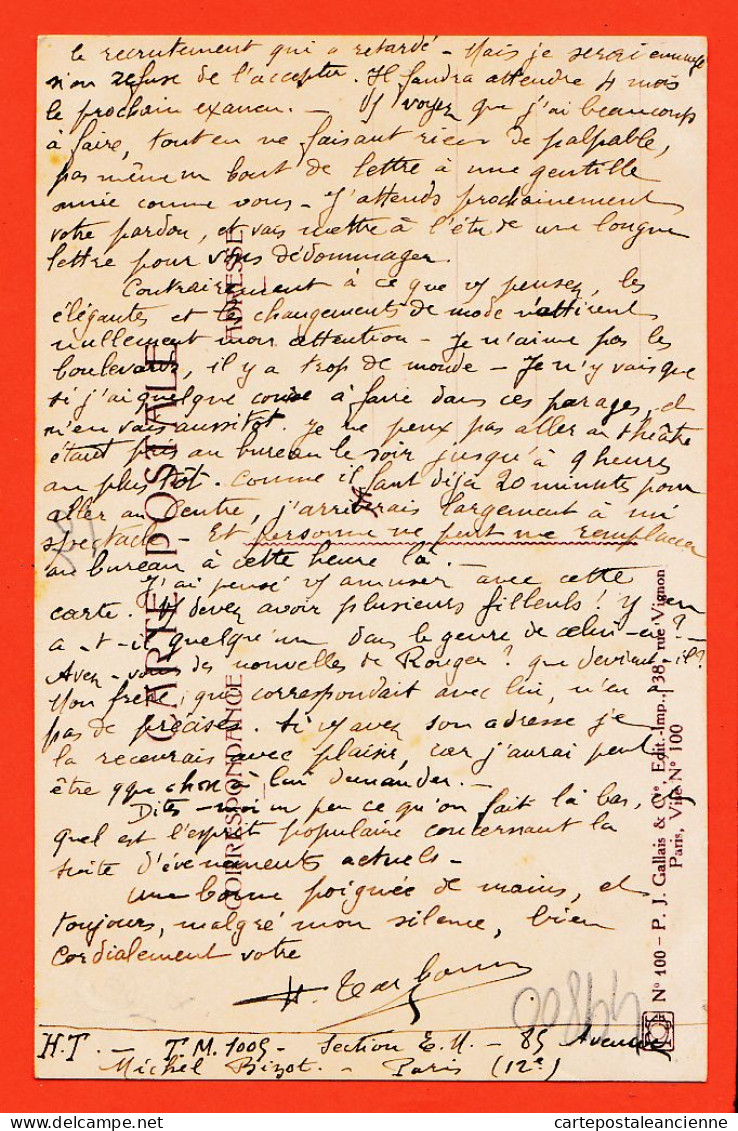 le recrutement qui a retardé - Mais je serai ennuyé
si on refuse de l'accepter. Il faudra attendre 4 mois
le prochain examen. - Vs voyez que j'ai beaucoup
à faire, tout en ne faisant rien de palpable,
pas même un bout de lettre à une gentille
amie comme vous - J'attends prochainement
votre pardon, et vais mettre à l'étude une longue
lettre pour vous dédommager.
Contrairement à ce que vs pensez, les
élégantes et les changements de mode n'attirent
nullement mon attention - Je n'aime pas les
boulevards, il y a trop de monde - Je n'y vais que
si j'ai quelque course à faire dans ces parages, et
m'en vais aussitôt. Je ne peux pas aller au théâtre
étant pris au bureau le soir jusqu'à 9 heures
au plus tôt. Comme il faut déjà 20 minutes pour
aller au Centre, j'arriverais largement à mi
spectacle - Et personne ne peut me remplacer
au bureau à cette heure là. -
J'ai pensé vs amuser avec cette
carte. Vs devez avoir plusieurs filleuls! Y en
a-t-il quelqu'un dans le genre de celui-ci? -
Avez-vous des nouvelles de Rouger? que devient-il?
Mon frère, qui correspondait avec lui, n'en a
pas de précises. Si vs avez son adresse je
la recevrais avec plaisir, car j'aurai peut
être qque chose à lui demander. -
Dites-moi un peu ce qu'on fait là bas,
Quel est l'esprit populaire concernant la
suite d'évènements actuels -
Une bonne poignée de mains, et
toujours, malgré mon silence, bien
cordialement votre
H.T. - T.M. 1005 - Section E.M. - 85 Avenue
Michel Bizot. - Paris (12e)
CARTE POSTALE
CORRESPONDANCE
ADRESSE
N° 100 - P. J. Gallais & Cie, Edit.-Imp., 38, rue Vignon
Paris, Visé N° 100
cartepostaleancienne
cartepostaleancienne.com